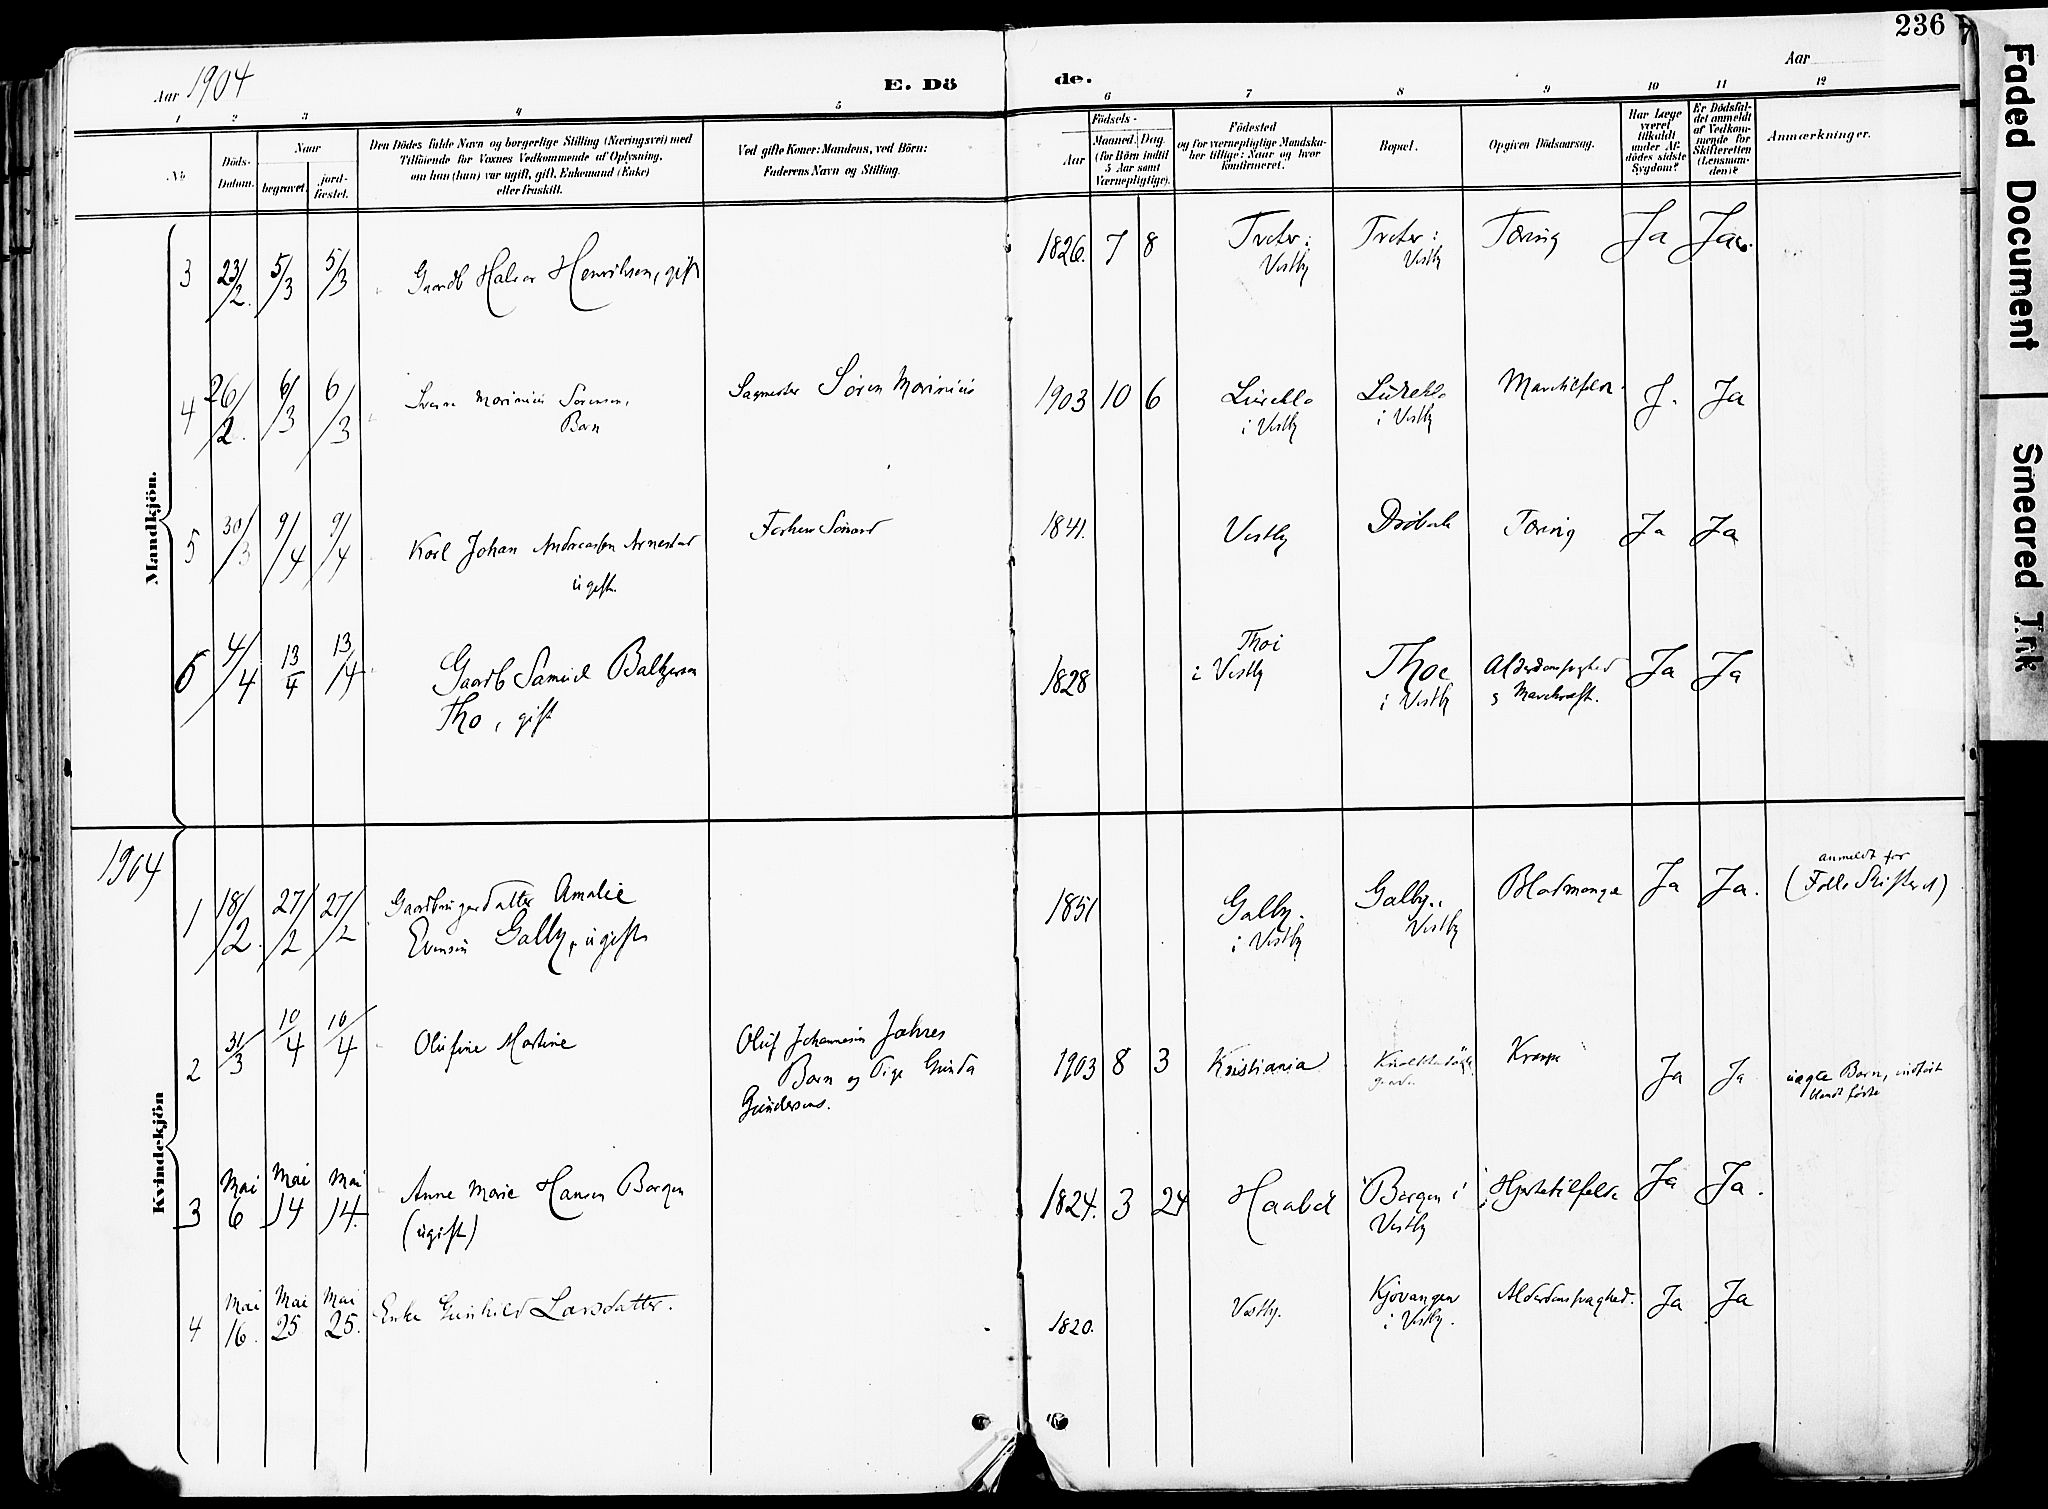 236
Aar 1904
E. Dö
de.
Aar
1
2
3
4
5
6
7
8
9
10
11
12
No
Döds-
Datum.
Naar
begravet.
jord-
fæstet.
Den Dödes fulde Navn og borgerlige Stilling (Næringsvei) med
Tilföiende for Voxnes Vedkommende af Oplysning,
om hun (han) var ugift, gift, Enkemand (Enke)
eller fraskilt.
Ved gifte Koner: Mandens, ved Börn:
Faderens Navn og Stilling.
Födsels-
Aar
Maaned.
Dag.
(for Börn indtil
5 Aar samt
Værnepligtige).
Födested
og for værnepligtige Mandska-
ber tillige: Naar og hvor
konfirmeret.
Bopæl.
Opgiven Dödsaarsag.
Har Læge
været
tilkaldt
under Af-
dödes sidste
Sygdom?
Er Dödsfal-
det anmeldt
af Vedkom-
mende for
Skifteretten
(Lensman-
den)?
Anmærkninger.
Mandkjön.
3
23/2.
5/3
5/3
Gaardb Halvor Henriksen, gift
1826.
7
8
Tveter:
Vestby
Tveter:
Vestby
Tæring
Ja
Ja
4
26/2.
6/3
6/3
Marinius Sørensen,
Barn
Sagmester Søren Marinius
1903
10
6
i Vestby
i Vestby
J.
Ja
5
30/3
9/4
9/4
Karl Johan Andreassen Arnestad
ugift.
1841.
Vestby
Drøbak
Tæring
Ja
Ja
6
4/4
13/4
13/4
Gaardb Samuel Baltzersen
Tho, gift
1828
Thoe
i Vestby
Thoe
i Vestby
Alderdomssvaghed
Ja
Ja
1904
Kvindekjön
1
18/2.
27/2
27/2
Gaardbrugerdatter Amalie
Evensen Galby, ugift
1851
Galby.
i Vestby
Galby.
Vestby
Blodmangel
Ja
Ja.
anmeldt for
(Follo Skifteret)
2
31/3
10/4
10/4
Olufine Martine
Oluf Johannesen Jahres
Barn og Pige Gunda
Gundersens.
1903
8
3
Kristiania
Krampe
Ja
Ja
uægte Barn, indført
blandt fødte
3
Mai
6
Mai
14
Mai
14.
Anne Marie Hansen Bergen
(ugift)
1824.
3
24
Haabøl
Bergen i
Vestby
Hjertetilfelde
Ja
Ja.
4
Mai
16.
Mai
25
Mai
25.
Enke Gunhild Larsdatter.
1820.
Vestby.
Kjøvangen
i Vestby.
Alderdomssvaghed.
Ja
Ja
Faded Document
Smeared Ink